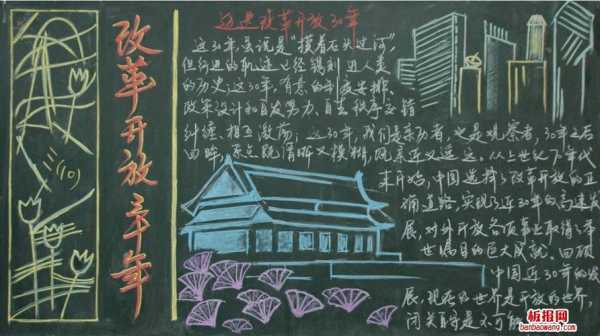 改革开放三十年
迈进改革开放30年
这30年,虽说是“摸着石头过河”,
但行进的轨迹已经镌刻进人类
的历史;这30年,有意的制度安排、
政策设计和自发努力、自由秩序交错
纠缠、相互激荡;这30年,我们是亲历者,也是观察者,30年之后
回眸,原点既清晰又模糊,既亲近又遥远。从上世纪
末开始,中国选择了改革开放的正
确道路,实现了近30年的高速发
展,对外开放各项事业取得了举
世瞩目的巨大成就。回顾
中国近30年的发
展,现在的世界是开放的世界,
闭关自守是不可能
板报网
banbaowang.com